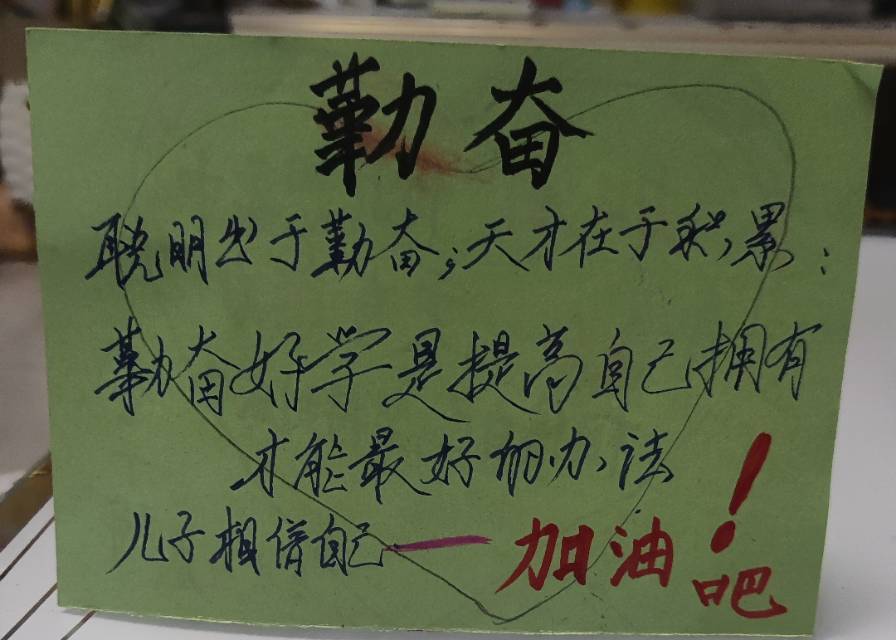 勤奋
聪明出于勤奋;天才在于积累:
勤奋好学是提高自己拥有
才能最好的办法
儿子相信自己——加油!
吧